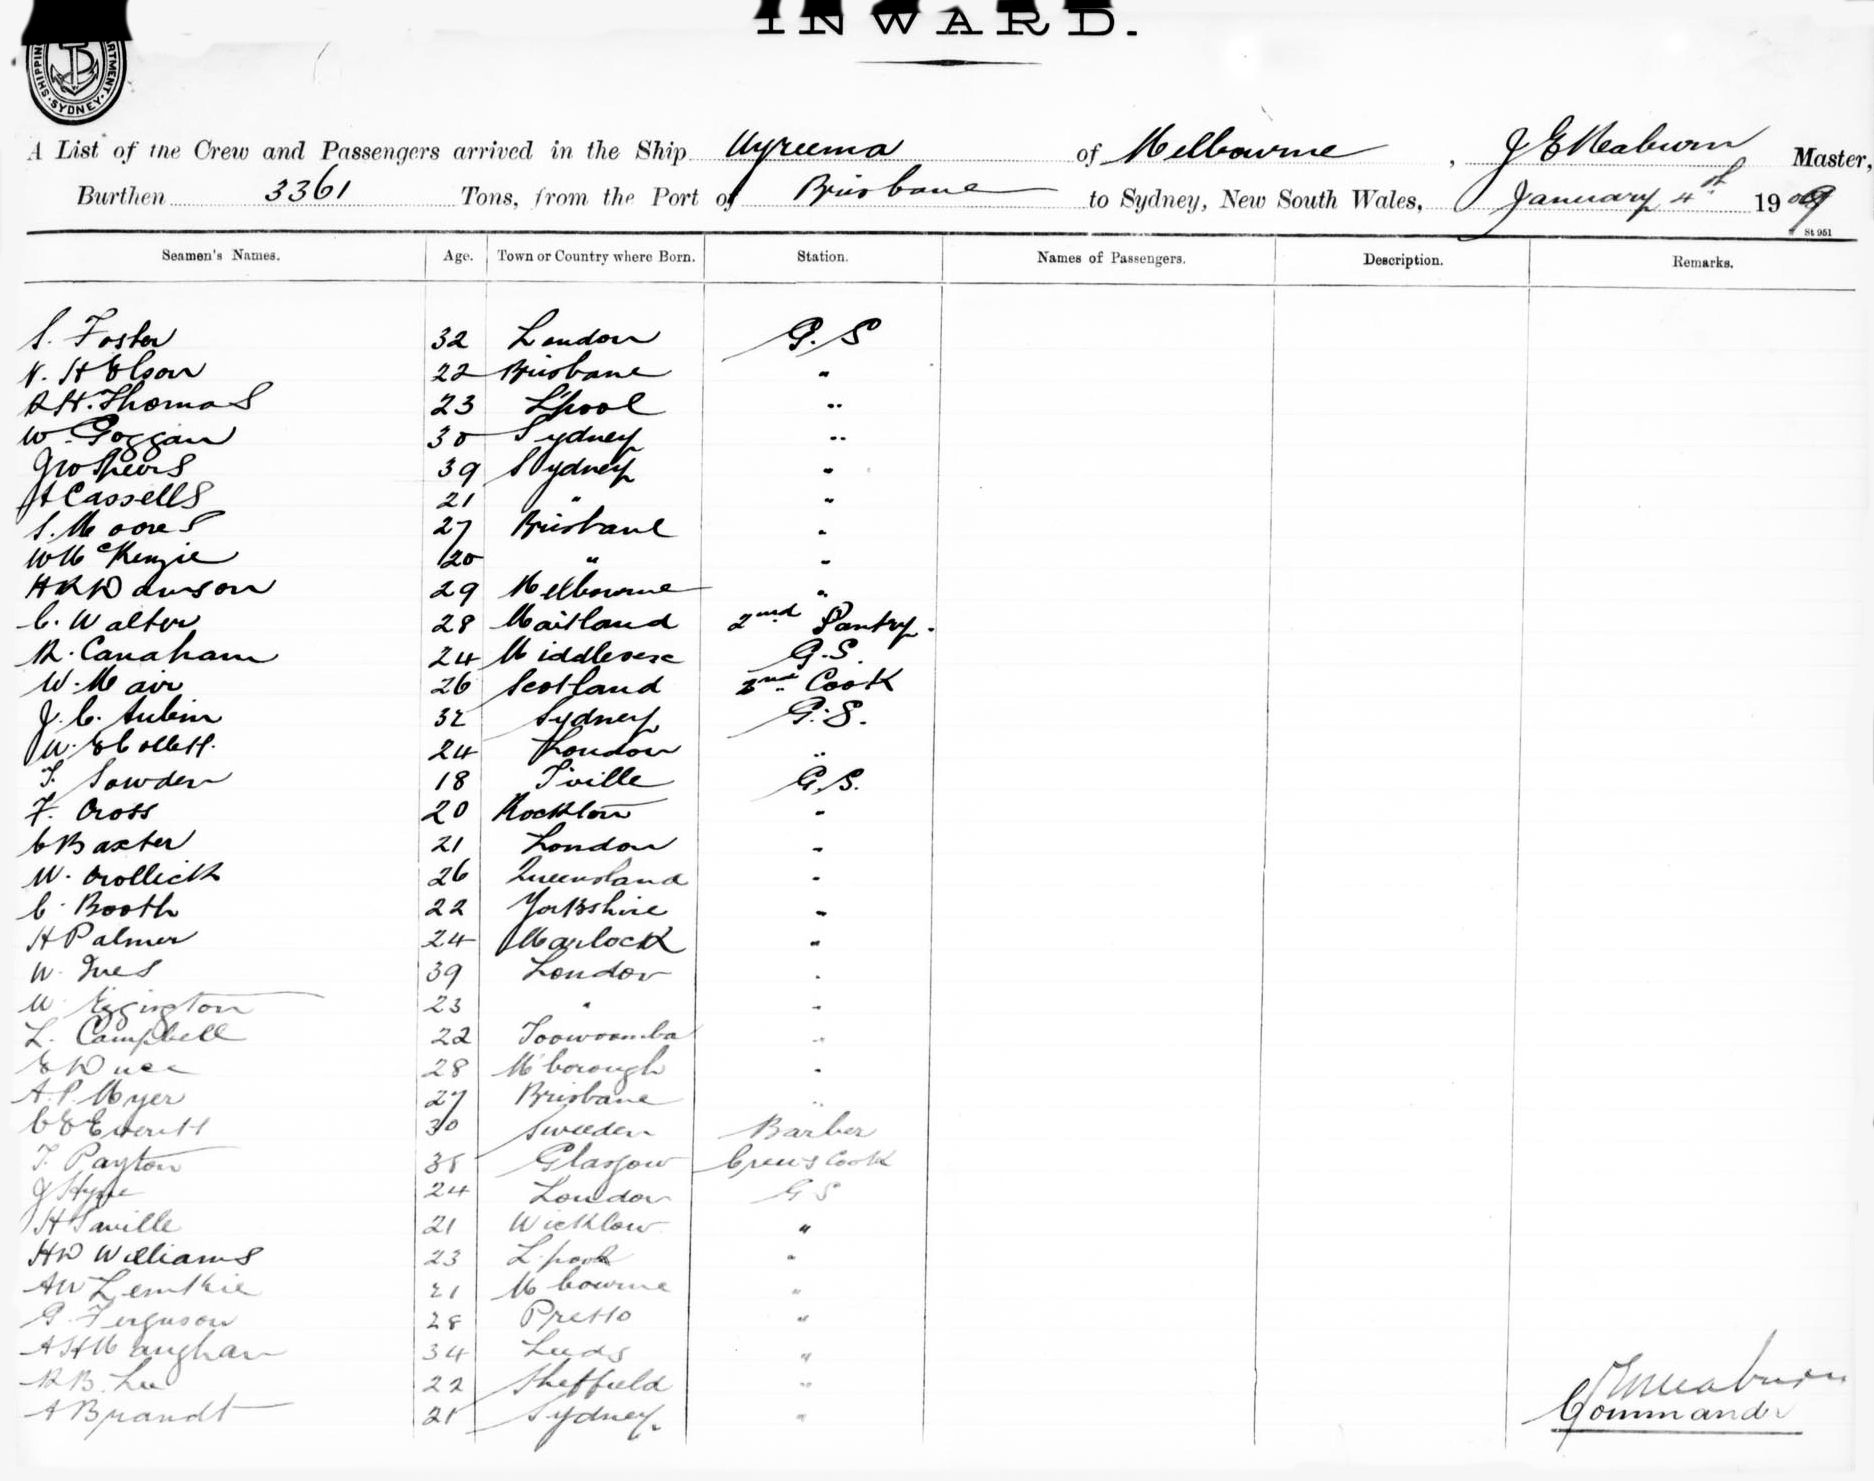 INWARD.
SHIPPING DEPARTMENT SYDNEY
A List of the Crew and Passengers arrived in the Ship Wyreema of Melbourne, J E Meaburn Master,
Burthen 3361 Tons, from the Port of Brisbane to Sydney, New South Wales, January 4th 1909
St 951
Seamen's Names. Age. Town or Country where Born. Station. Names of Passengers. Description. Remarks.
S. Foster 32 London G.S
H Olson 22 Brisbane "
R H. Thomas 23 L'pool "
W. Goggan 30 Sydney "
Jno Spiers 39 Sydney "
A Cassells 21 " "
S. Moores 27 Brisbane "
W McKenzie 20 " "
H R Dawson 29 Melbourne "
C. Walter 28 Maitland 2nd Pantry.
R. Canaham 24 Middlesex G.S.
W. Mair 26 Scotland 2nd Cook
J. C. Aubin 32 Sydney G.S.
W. E Collett. 24 London "
T. Sowden 18 T'ville G.S.
F. Cross 20 Rockton "
C Baxter 21 London "
W. Crollick 26 Queensland "
C. Booth 22 Yorkshire "
H Palmer 24 Marlock "
W. Ives 39 London "
W. 23 " "
L. Campbell 22 Toowoomba "
E 28 M'borough "
A. P. Myer 27 Brisbane "
C E Everitt 30 Sweeden Barber
T. Payton 38 Glasgow Crews Cook
J Hyne 24 London G S
H Saville 21 Wicklow "
H D Williams 23 L'pool "
A W Lemkie 21 M'bourne "
G. Ferguson 28 "
A H Maughan 34 Leeds "
R B. Lee 22 Sheffield "
A Brandt 21 Sydney. "
J E Meaburn
Commander